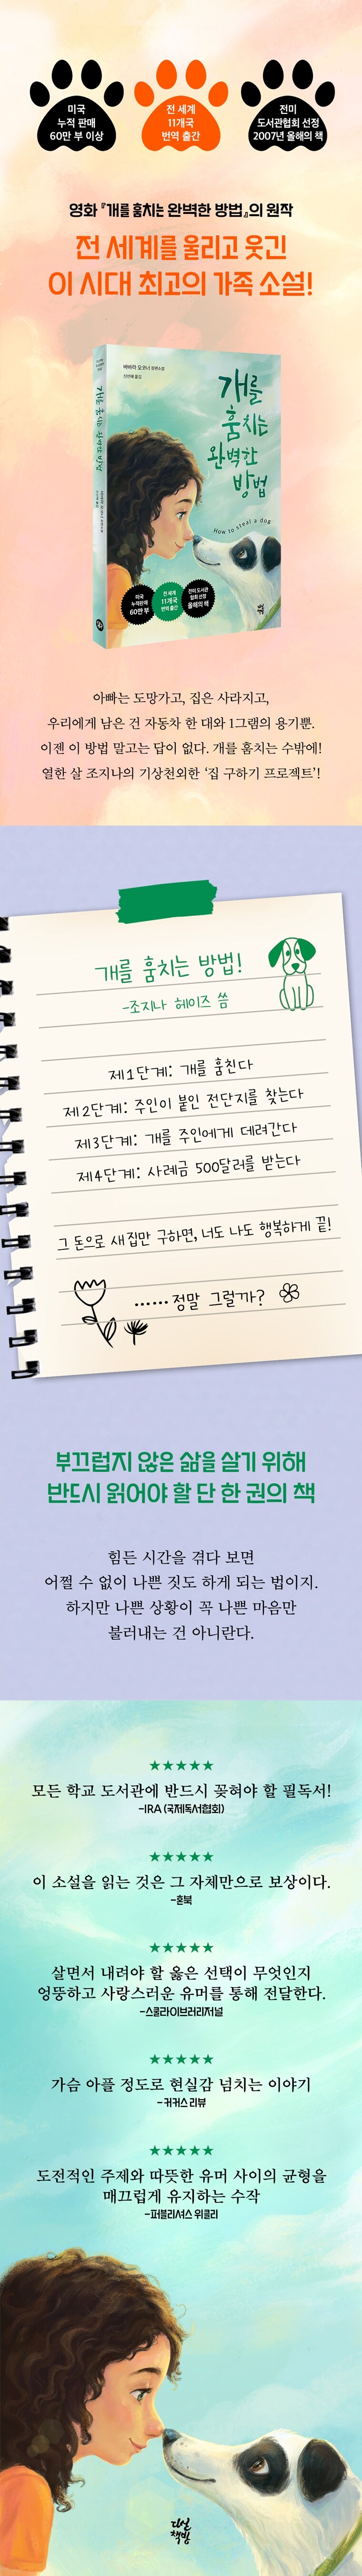 미국
누적 판매
60만 부 이상
전 세계
11개국
번역 출간
전미
도서관협회 선정
2007년 올해의 책
영화 『개를 훔치는 완벽한 방법』의 원작
전 세계를 울리고 웃긴
이 시대 최고의 가족 소설!
바바라 오코너 장편소설
신선해 옮김
개를
훔치는
완벽한
방법
How to steal a dog
개를 훔치는 완벽한 방법
미국
누적판매
60만 부
전 세계
11개국
번역 출간
전미 도서관
협회 선정
올해의 책
아빠는 도망가고, 집은 사라지고,
우리에게 남은 건 자동차 한 대와 1그램의 용기뿐.
이젠 이 방법 말고는 답이 없다. 개를 훔치는 수밖에!
열한 살 조지나의 기상천외한 ‘집 구하기 프로젝트’!
개를 훔치는 방법!
-조지나 헤이즈 씀
제1단계: 개를 훔친다
제2단계: 주인이 붙인 전단지를 찾는다
제3단계: 개를 주인에게 데려간다
제4단계: 사례금 500달러를 받는다
그 돈으로 새 집만 구하면, 너도 나도 행복하게 끝!
……정말 그럴까?
부끄럽지 않은 삶을 살기 위해
반드시 읽어야 할 단 한 권의 책
힘든 시간을 겪다 보면
어쩔 수 없이 나쁜 짓도 하게 되는 법이지.
하지만 나쁜 상황이 꼭 나쁜 마음만
불러내는 건 아니란다.
★★★★★
모든 학교 도서관에 반드시 꽂혀야 할 필독서!
-IRA (국제독서협회)
★★★★★
이 소설을 읽는 것은 그 자체만으로 보상이다.
-혼북
★★★★★
살면서 내려야 할 옳은 선택이 무엇인지
엉뚱하고 사랑스러운 유머를 통해 전달한다.
-스쿨라이브러리저널
★★★★★
가슴 아플 정도로 현실감 넘치는 이야기
- 커커스 리뷰
★★★★★
도전적인 주제와 따뜻한 유머 사이의 균형을
매끄럽게 유지하는 수작
-퍼블리셔스 위클리
다산
책방